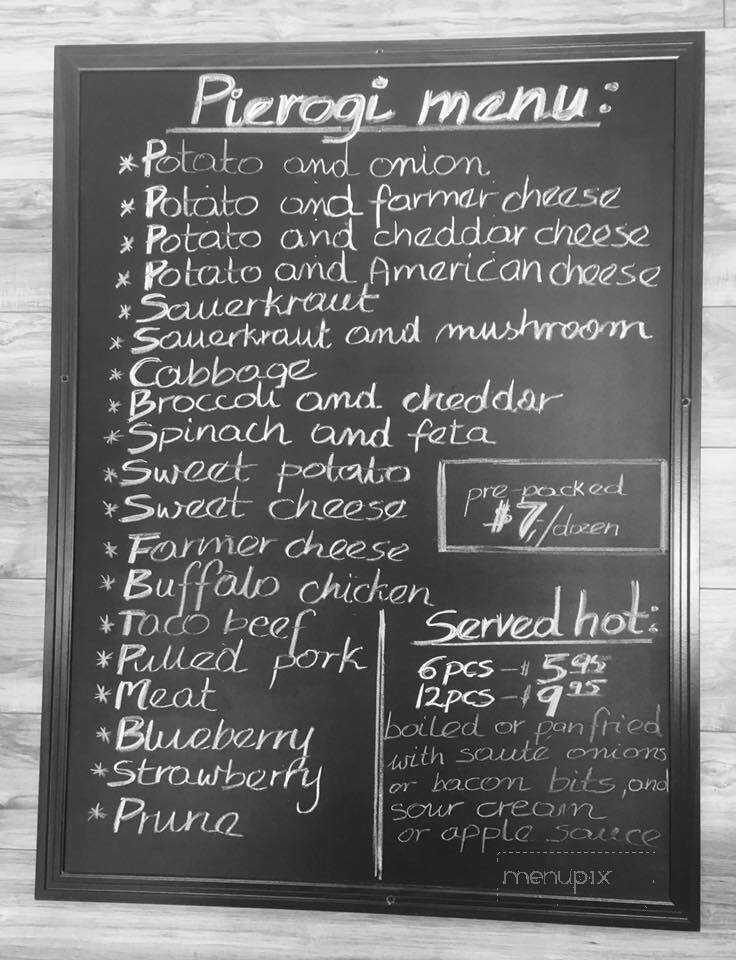 Pierogi menu:
* Potato and onion
* Potato and farmer cheese
* Potato and cheddar cheese
* Potato and American cheese
* Sauerkraut
* Sauerkraut and mushroom
* Cabbage
* Broccoli and cheddar
* Spinach and feta
* Sweet potato
* Sweet cheese
* Farmer cheese
* Buffalo chicken
* Taco beef
* Pulled pork
* Meat
* Blueberry
* Strawberry
* Prune
pre-packed
$7,-/dozen
Served hot:
6pcs - $5.95
12pcs - $9.95
boiled or pan fried
with saute onions
or bacon bits, and
sour cream
or apple sauce
menupix